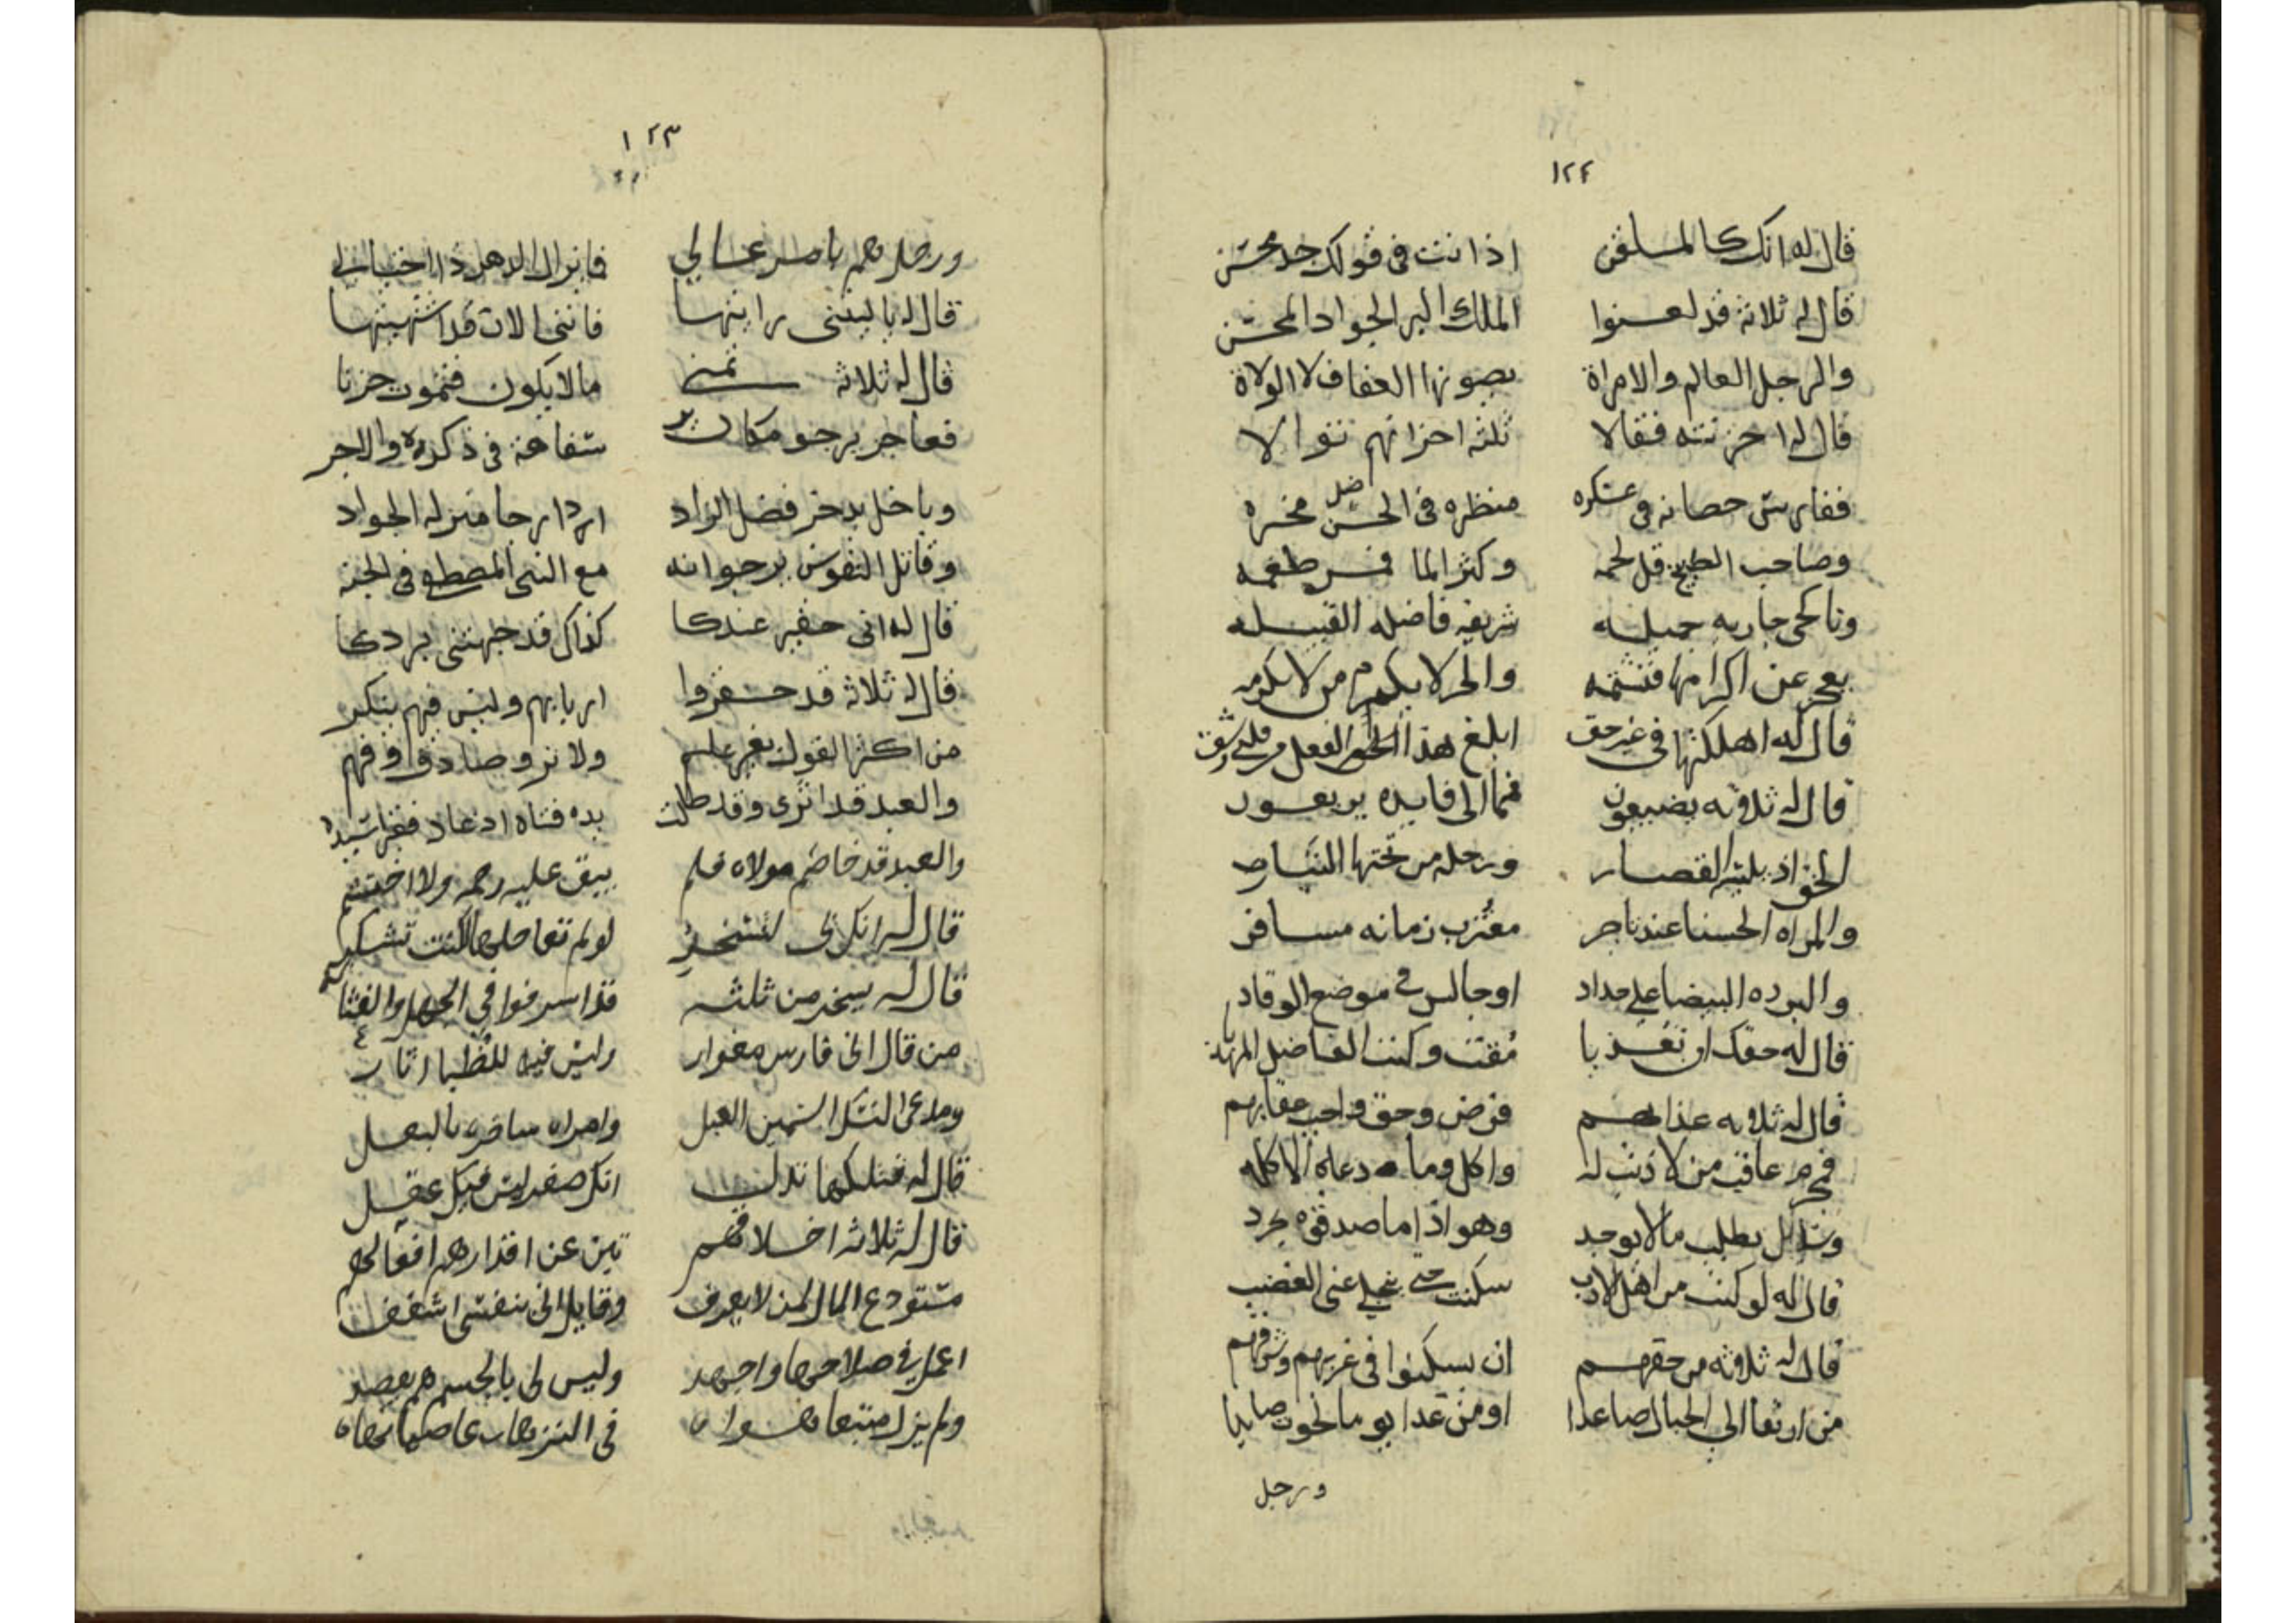 ١٢٤
قال له انك كالملقن اذا انت فى قولك جد محسن
قال له ثلاثة قد لعنوا الملك البر الجواد المحسن
والرجل العالم والامراة يصونها العفاف لا الولاة
قال له احزنته فقالا ثلثه احزانهم تتوالا
ففارس حصانه فى عسكره منظره فى الحسن مخبره
وصاحب الطبيخ قل لحمه وكثر الما طعمه
وناكحى جاريه جميله شريفه فاضله القبيله
يعجز عن اكرامها فتشتمه والحر لا يكرم من لا يكرمه
قال له اهلكتها فى غير حق ابلغ هذا الفعل من
قال له ثلاثه يضيعون فما الى فايده يريعون
الخز اذ يلبسه القصار ورجله من تحتها
والمراه الحسنا عند تاجر مغترب زمانه مسافر
والبرده البيضا على حداد او جالس فى موضع الوقاد
قال له حقك ان تعذبا مقت وكنت الفاضل المهذبا
قال له ثلاثه عذابهم فرض وحق واجب عقابهم
مجرم عاقب من لا ذنب له واكل وما دعاه الاكله
وسايل يطلب ما لا يوجد وهو اذا ما صدقوه يجرد
قال له لو كنت من اهل الادب سكنت حتى ينجلى عنى الغضب
قال له ثلاثه من حقهم ان يسكنوا فى غربهم وشرقهم
من ارتقا الى الجبال صاعدا او من غدا يوما لحوت صايدا
ورجل
١٢٣
ورجل هم بامر عالي فانزال الدهر ذا اختبال
قال له يا ليتنى رايتها فاننى الان قد اشتهيتها
قال له ثلاثه تمنى ما لا يكون فتموت حزنا
فعاجر يرجو مكان شفاعة فى ذكره والاجر
وباخل يدخر فضل الزاد رجا منزله الجواد
وقاتل النفوس يرجو انه مع النبى المصطفى فى الجنه
قال له انى حقير عندكا كذاك قد جبهتنى بردكا
قال له ثلاثه قد حقروا اربابهم وليس فيهم ينكر
من اكثر القول بغير علم ولا تروصادق وفهم
والعبد قد اثرى وقد طالت يده فتاه
والعبد قد خاصم مولاه فلم يبق عليه رحمه ولا احتشم
قال له انك بى لتسخر لو لم تعاملها لكنت تشكر
قال له يسخر من ثلثه قد اسرفوا فى الجهل
من قال انى فارس مغوار وليس فيه للظبا اثار
ومدعى النسك السمين العبل وامراه ساخره بالبعل
قال له قتلكها تدلـ انك صفر ليس فيك عقل
قال له ثلاثه اخلاقهم تبين عن اقدارهم افعالهم
مستودع المال لمن لا يعرف وقايل انى بنفسى اشغف
اعمل فى صلاحها واجهد وليس لى بالجسم هم يقصد
ولم يزل متبعا هواه فى النزهات عاصيا نهاه